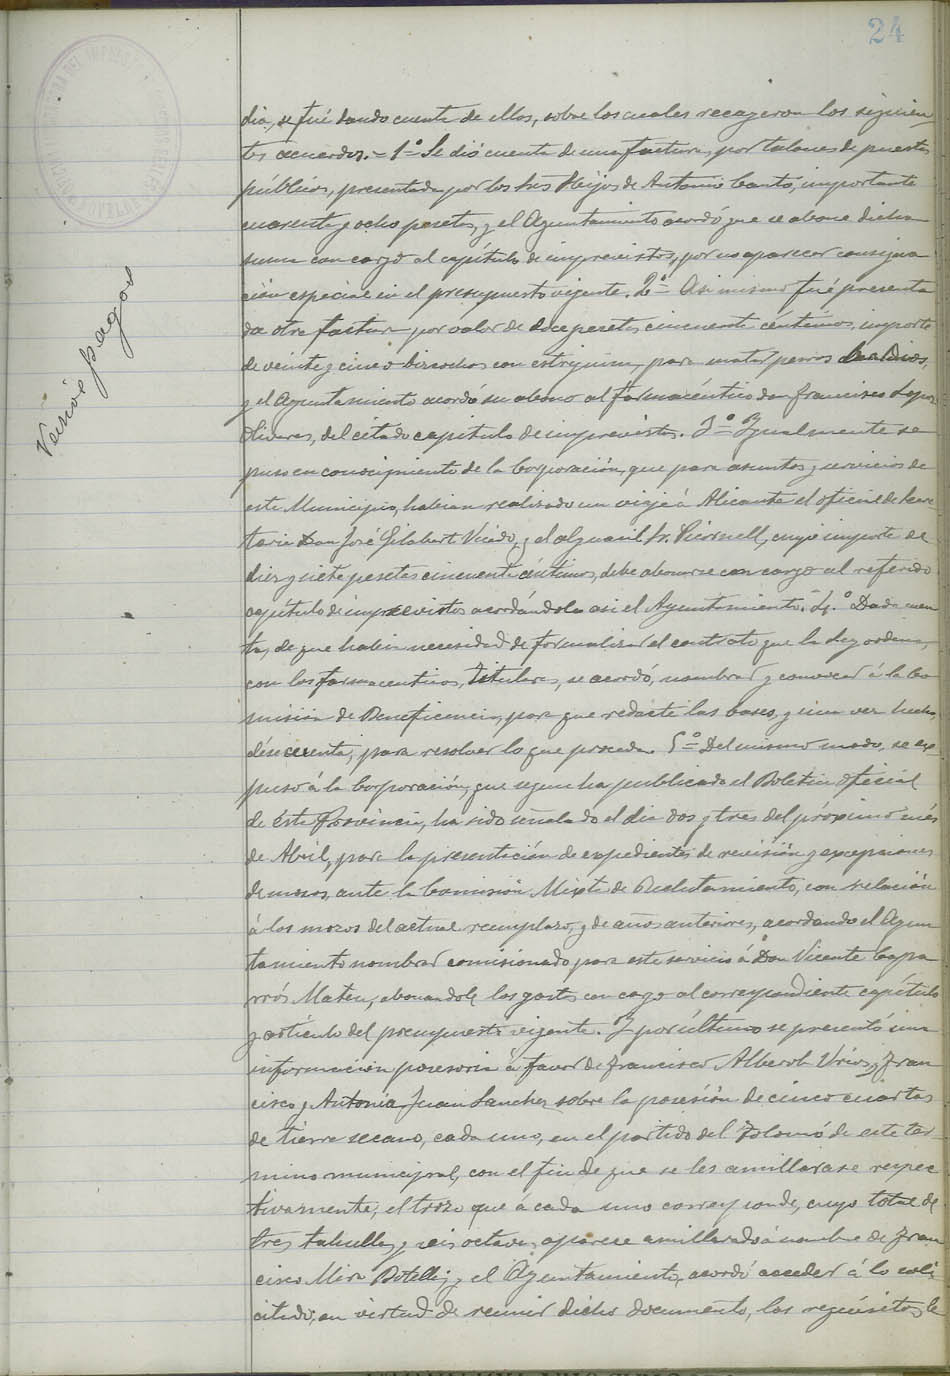 24
Varios pagos
dia, se fué dando cuenta de ellos, sobre los cuales recayeron los siguien-
tes acuerdos. = 1º Se dió cuenta de una factura, por talones de puestos
públicos, presentada por los tres Hijos de Antonio Cantó, importante
cuarenta y ocho pesetas, y el Ayuntamiento acordó que se abone dicha
suma con cargo al capítulo de imprevistos, por no aparecer consigna
ción especial en el presupuesto vigente. 2º Asi mismo fué presenta
da otra factura por valor de doce pesetas cincuenta céntimos, importe
de veinte y cinco bizcochos con estrignina, para matar perros
y el Ayuntamiento acordó su abono al farmacéutico don Francisco Lopez
Olivares, del citado capitulo de imprevistos. 3º Igualmente se
puso en conocimiento de la Corporación, que para asuntos y servicios de
este Municipio, habian realizado un viaje á Alicante el oficial de Secre
taria Don José Gilabert Vicedo, y el alguacil Sr. Picornell, cuyo importe de
diez y siete pesetas cincuenta céntimos, debe abonarse con cargo al referido
capítulo de imprevistos acordándolo asi el Ayuntamiento. 4.º Dada cuen
ta, de que habia necesidad de formalizar el contrato que la ley ordena,
con los farmaceuticos, titulares, se acordó, nombrar y convocar á la Co
misión de Beneficencia, para que redacte las bases, y una vez hecho,
dése cuenta, para resolver lo que proceda. 5º Del mismo modo, se ex-
puso á la Corporación, que segun ha publicado el Boletin oficial
de ésta Provincia, ha sido señalado el dia dos y tres del próximo més
de Abril, para la presentación de expedientes de revisión y excepciones
de mozos, ante la Comisión Mixta de Reclutamiento, con relación
á los mozos del actual reemplazo, y de años anteriores, acordando el Ayun
tamiento nombrar comisionado para este servicio á Don Vicente Capa
rrós Mateu, abonandole los gastos con cargo al correspondiente capítulo
y artículo del presupuesto vigente. Y por último se presentó una
información posesoria á favor de Francisco Alberola Urios, y Fran
cisco y Antonia Juan Sanchez sobre la posesión de cinco cuartas
de tierra secano, cada uno, en el partido del de este ter-
mino municipal, con el fin de que se les amillarase respec
tivamente, el trozo que á cada uno corresponde, cuyo total de
tres tahullas y seis octavas, aparece amillarado á nombre de Fran
cisco Mira Botella; y el Ayuntamiento, acordó acceder á lo soli
citado, en virtud de reunir dicho documento, los requisitos le